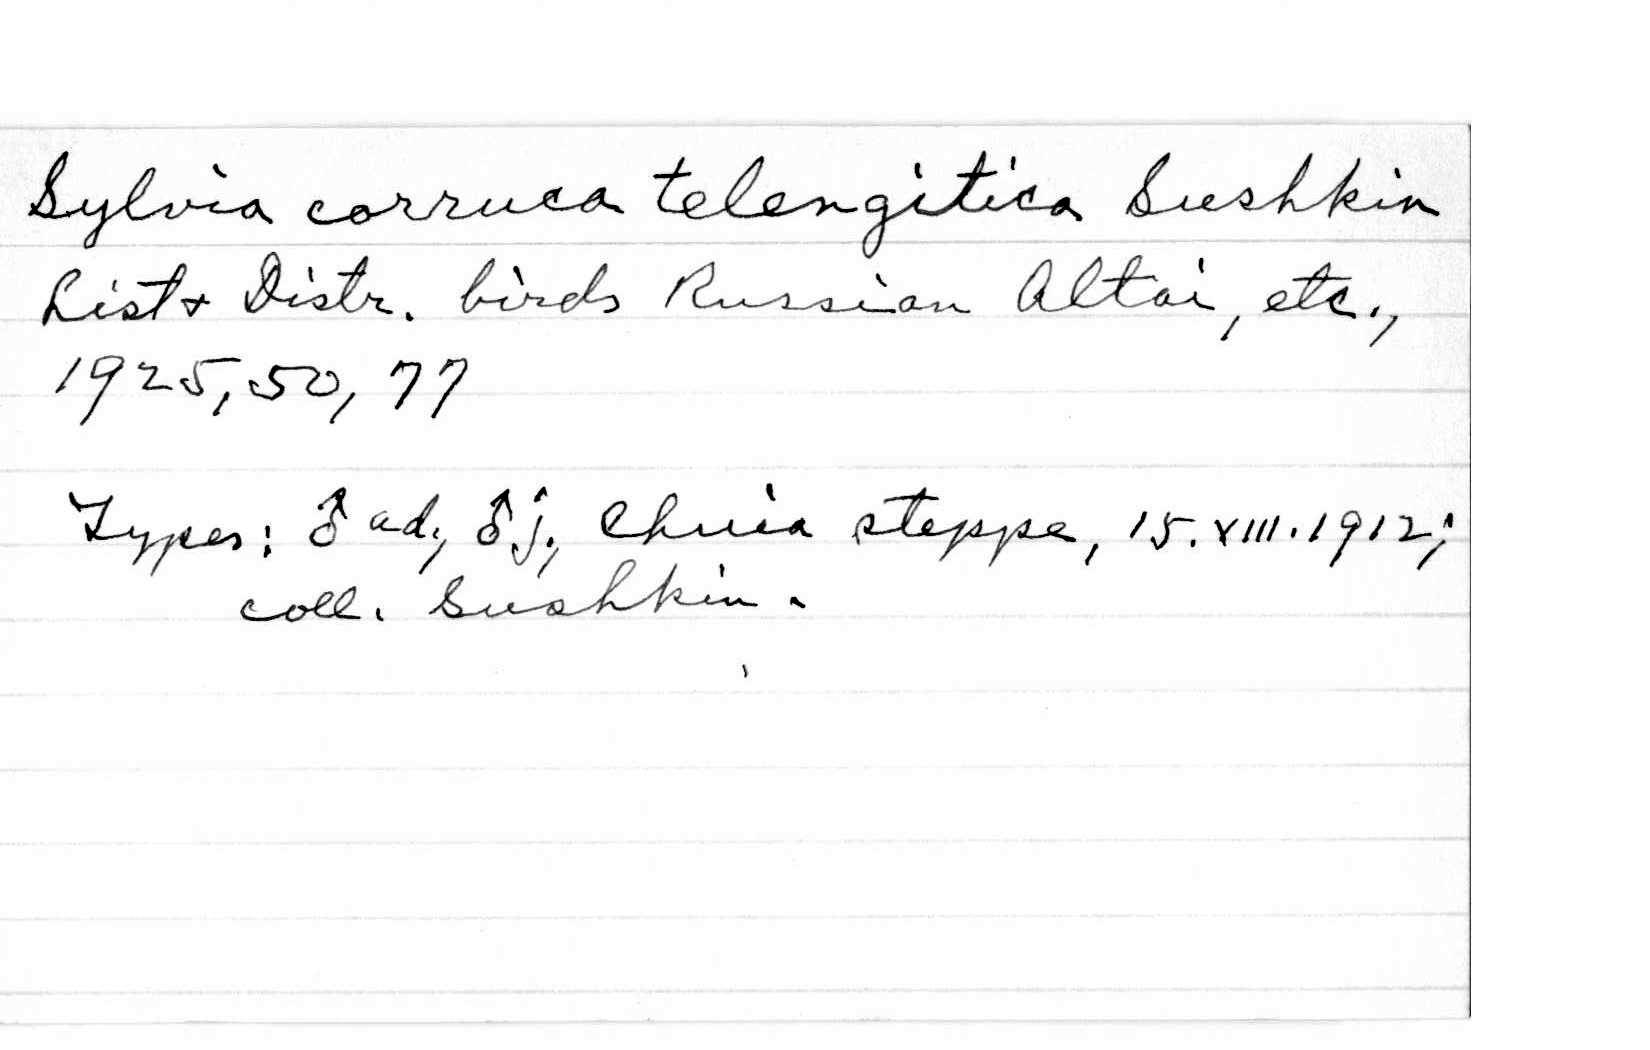 Sylvia corruca telengitica Sushkin
List & Distr. birds Russian Altai, etc.,
1925, 50, 77
Types: ♂ ad., ♂ j., Chuia steppe, 15.VIII.1912;
coll. Sushkin.